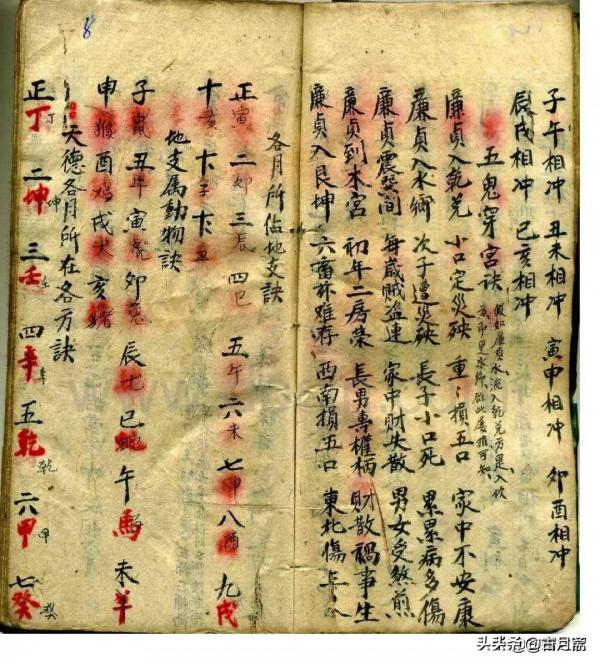 子午相冲 丑未相冲 寅申相冲 卯酉相冲
辰戌相冲 巳亥相冲
五鬼穿宮訣
假如廉貞水流入乾兑方是入坎
方即是水鄉依此屡推可知
廉貞入乾兑 小口定災殃 重〻損五口 家中不安康
廉貞入水鄉 次子遭災殃 長子小口死 累累病多傷
廉貞震巽间 每歲賊盗連 家中財失散 男女受煞煎
廉貞到水宫 初年二房荣 長男專權柄 財散禍事生
廉貞入艮坤 六畜亦难存 西南損五口 東北傷人
8
各月所佔地支訣
正寅 二卯 三辰 四巳 五午 六未 七申 八酉 九戌
十亥 卞子 卞丑
地支属動物訣
子鼠 丑牛 寅虎 卯兔 辰龙 巳蛇 午馬 未羊
申猴 酉鸡 戌犬 亥猪
天德各月所在各方訣
正丁丁 二坤坤 三壬壬 四辛辛 五乾乾 六甲甲 七癸癸
头条号@古月斋